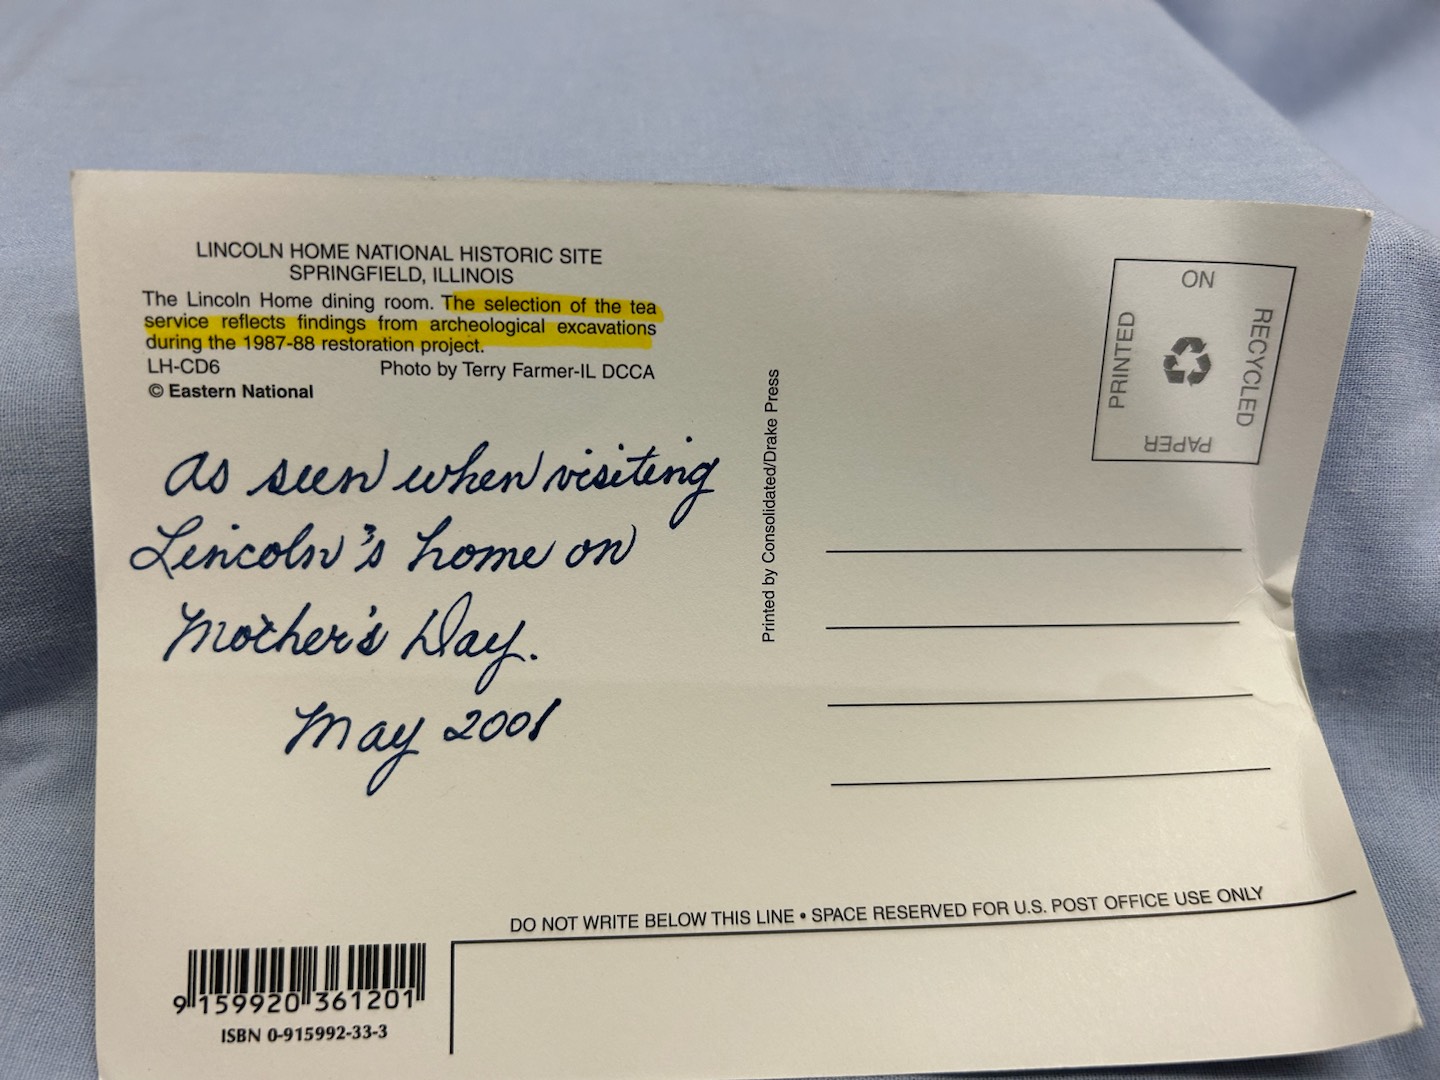 LINCOLN HOME NATIONAL HISTORIC SITE
SPRINGFIELD, ILLINOIS
The Lincoln Home dining room. The selection of the tea
service reflects findings from archeological excavations
during the 1987-88 restoration project.
LH-CD6 Photo by Terry Farmer-IL DCCA
© Eastern National
As seen when visiting
Lincoln's home on
Mother's Day.
May 2001
Printed by Consolidated/Drake Press
PRINTED
ON
RECYCLED
PAPER
DO NOT WRITE BELOW THIS LINE • SPACE RESERVED FOR U.S. POST OFFICE USE ONLY
9 159920 361201
ISBN 0-915992-33-3